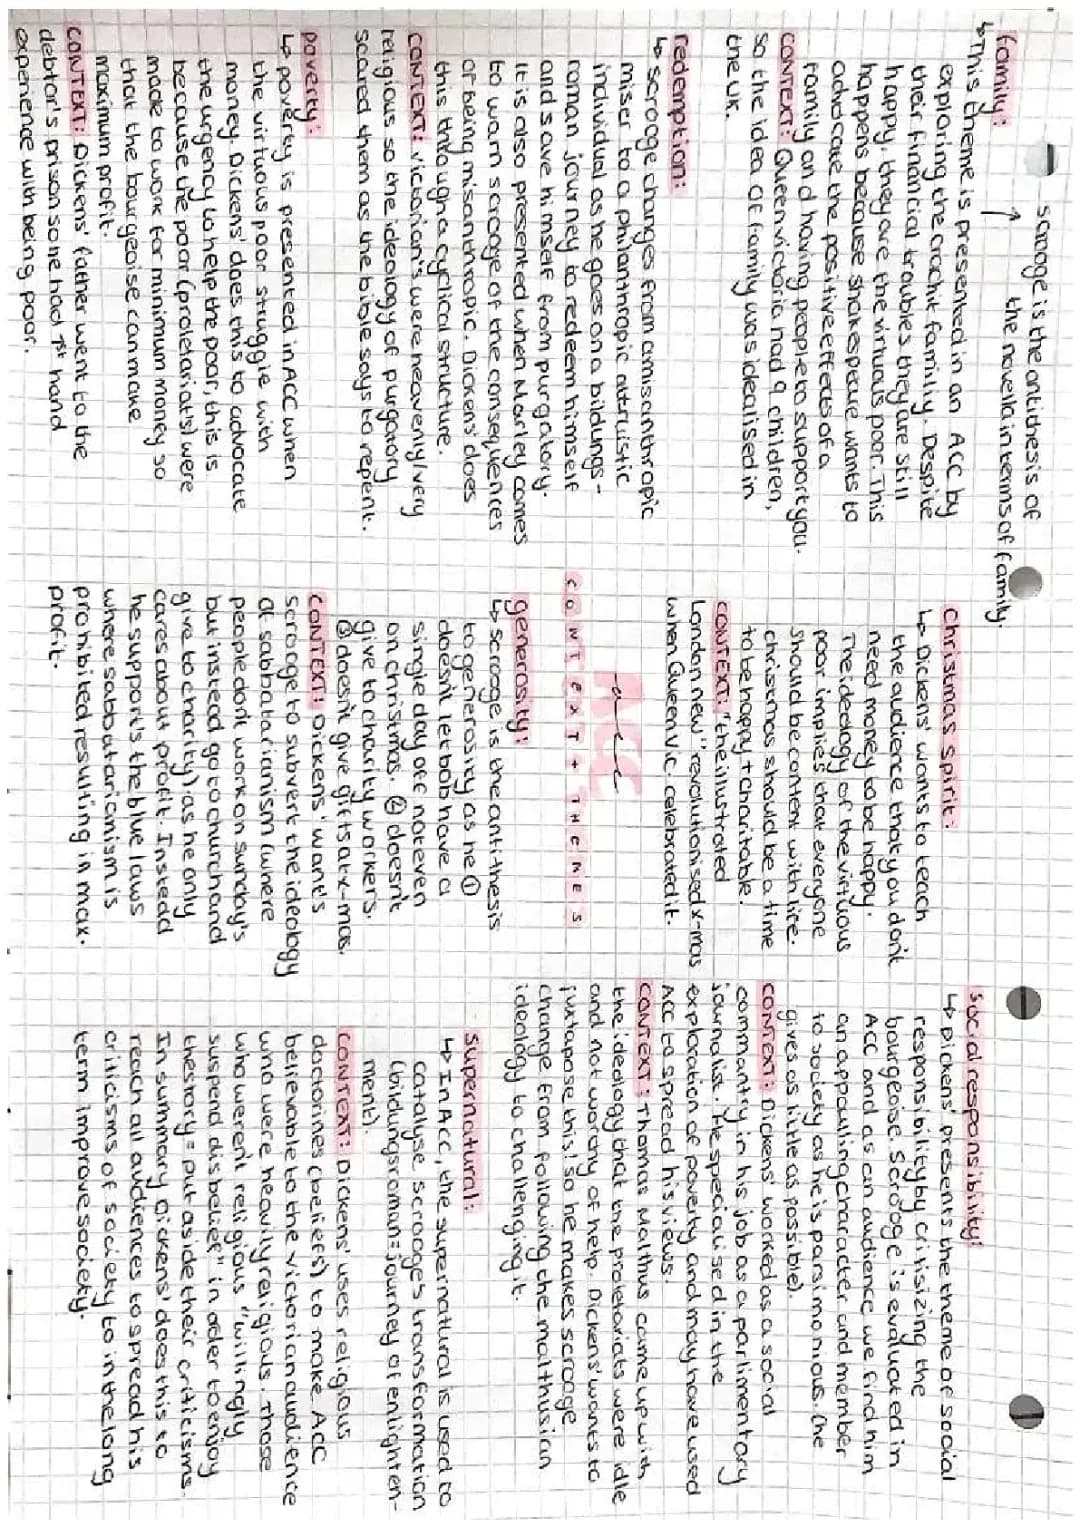 scrooge is the antithesis of
the novella in terms of family.
family:
↳ This theme is presented in an ACC by
exploring the cratchit family. Despite
their financial troubles they are still
happy, they are the virtuous poor. This
happens because shakespeare wants to
advocate the positive effects of a
family and having people to support you.
CONTEXT: Queen victoria had 9 children,
so the idea of family was idealised in
the UK.
redemption:
↳ scrooge changes from a misanthropic
miser to a philanthropic altruistic
individual as he goes on a bildungs-
roman journey to redeem himself
and save himself from purgatory.
It is also presented when Marley comes
to warn scrooge of the consequences
of being misanthropic. Dickens' does
this through a cyclical structure.
CONTEXT: victorian's were heavenly/very
religious so the ideology of purgatory
scared them as the bible says to repent.
poverty:
↳ poverty is presented in ACC when
the virtuous poor struggle with
money. Dickens' does this to advocate
the urgency to help the poor, this is
because the poor (proletariats) were
made to work for minimum money so
that the bourgeoise can make
maximum profit.
CONTEXT: Dickens' father went to the
debtor's prison so he had 1st hand
experience with being poor.
Christmas spirit:
↳ Dickens' wants to teach
the audience that you don't
need money to be happy.
The ideology of the virtuous
poor implies that everyone
should be content with life.
christmas should be a time
to be happy + charitable.
CONTEXT: "the illustrated
London new" revolutionised x-mas
when Queen Vic. celebrated it.
ACC
CONTEXT + THEMES
generosity:
↳ scrooge is the antithesis
to generosity as he ①
doesn't let bob have a
single day off not even
on chrismas. ② doesn't
give to charity workers.
③ doesn't give gifts at x-mas.
CONTEXT: Dickens' want's
scrooge to subvert the ideology
of sabbatarianism (where
people don't work on sunday's
but instead go to church and
give to charity) as he only
cares about profit. Instead
he support's the blue laws
where sabbatarianism is
prohibited resulting in max.
profit.
social responsibility:
↳ Dickens' presents the theme of social
responsibility by critisizing the
bourgeoise. scrooge is evaluated in
ACC and as an audience we find him
an appauling character and member
to society as he is parsimonious. (he
gives as little as possible).
CONTEXT: Dickens' worked as a social
commantry in his job as a parlimentary
journalist. He specialised in the
exploration of poverty and may have used
ACC to spread his views.
CONTEXT: Thomas Malthus came up with
the ideology that the proletariats were idle
and not worthy of help. Dickens' wants to
juxtapose this! so he makes scrooge
change from following the malthusian
ideology to challenging it.
supernatural:
↳ In ACC, the supernatural is used to
catalyse scrooge's transformation
(bidungsroman = journey of enlighten-
ment).
CONTEXT: Dickens' uses religious
doctorines (beliefs) to make ACC
believable to the victorian audience
who were heavily religious. Those
who weren't religious "willingly
suspend disbelief" in order to enjoy
the story = put aside their criticisms.
In summary Dickens' does this to
reach all audiences to spread his
criticisms of society to in the long
term improve society.